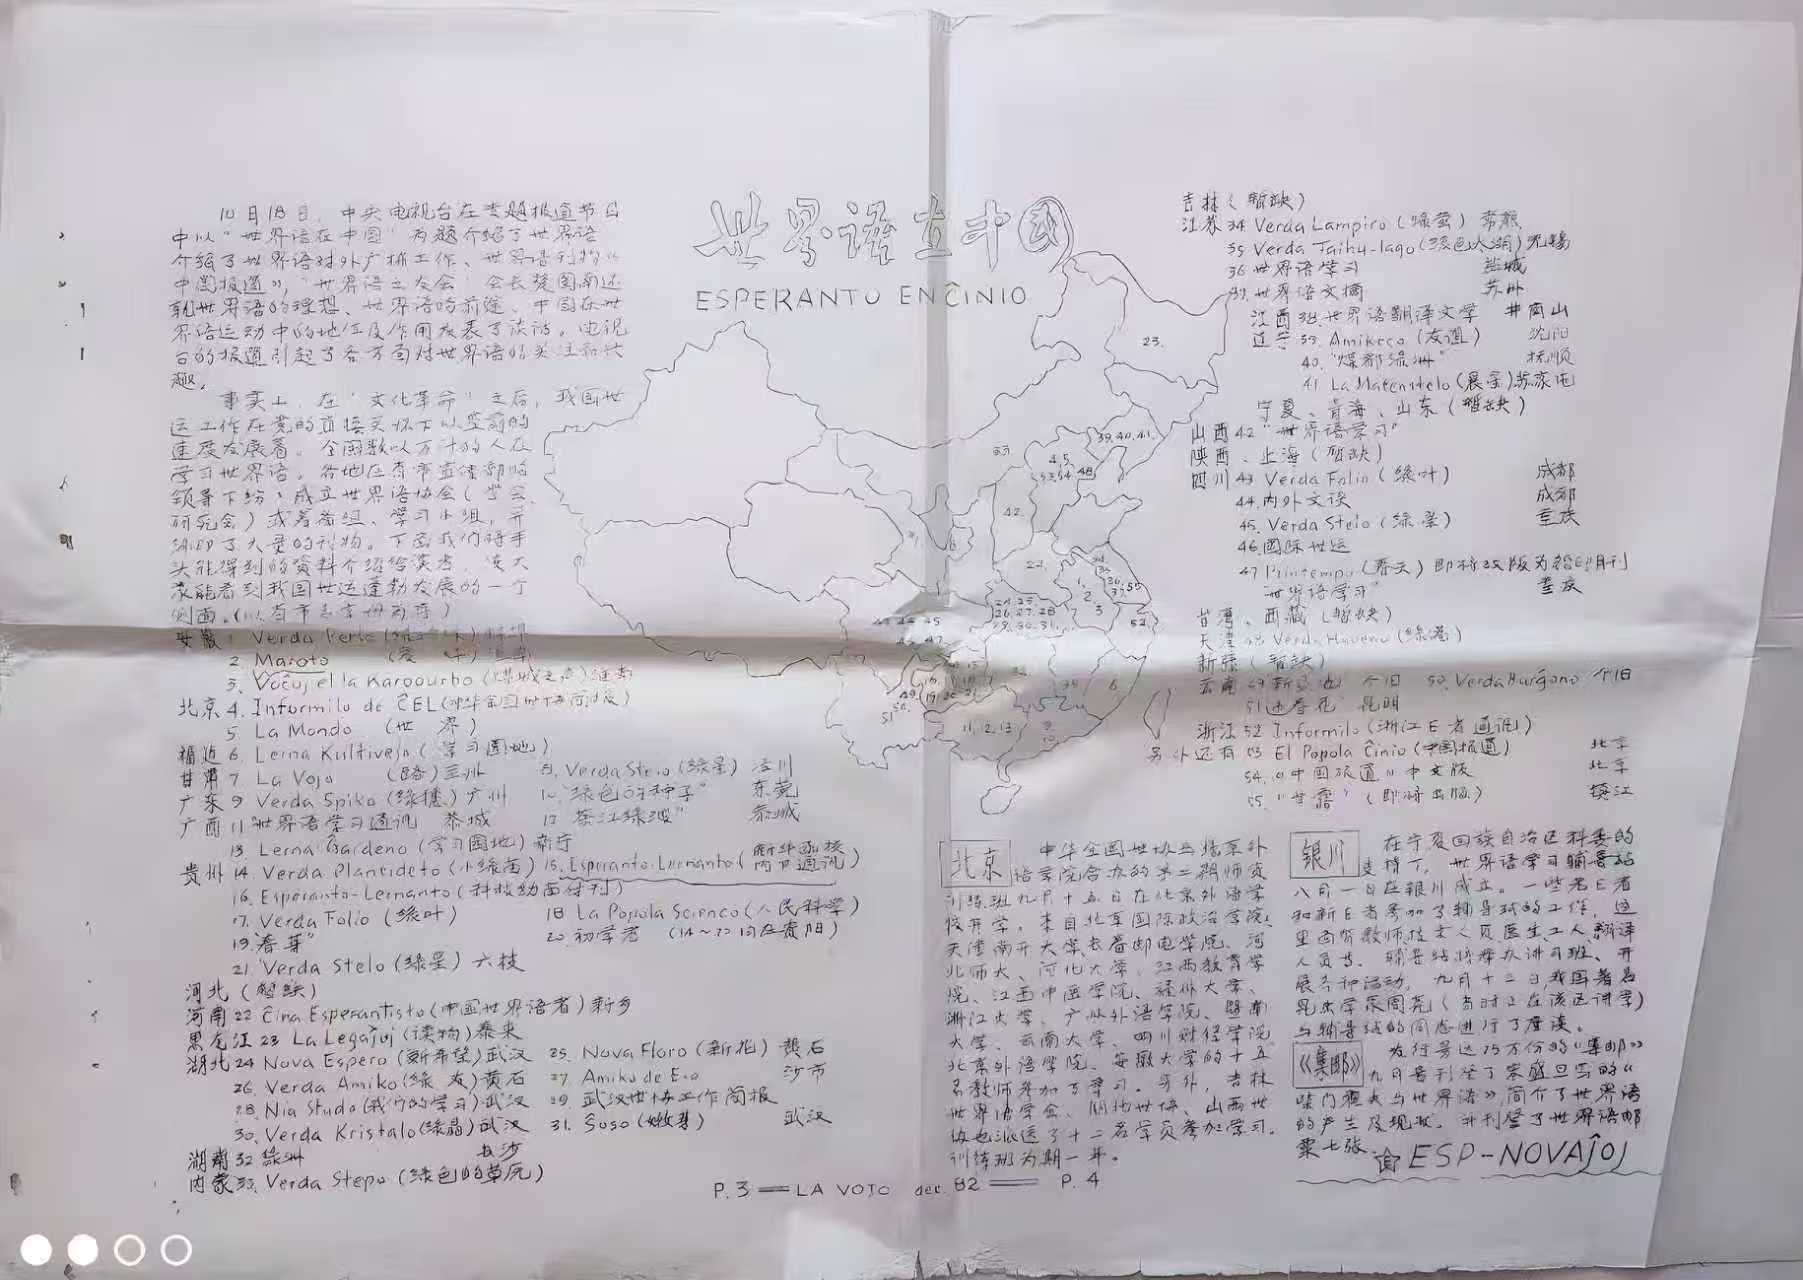 世界语在中国
ESPERANTO EN ĈINIO
10月18日，中央电视台在专题报道节目
中以“世界语在中国”为题介绍了世界语
介绍了世界语对外广播工作、世界语刊物《
中国报道》，“世界语之友会”会长楚图南还
就世界语的理想、世界语的前途、中国在世
界语运动中的地位及作用发表了谈话。电视
台的报道引起了各方面对世界语的关注和兴
趣。
事实上，在“文化革命”之后，我国世
运工作在党的直接关怀下以空前的
速度发展着。全国数以万计的人在
学习世界语。各地在省市宣传部的
领导下纷纷成立世界语协会（学会、
研究会）或筹备组、学习小组，并
编印了大量的刊物。下面我们将手
头能得到的资料介绍给读者，使大
家能看到我国世运蓬勃发展的一个
侧面。（以省市
安徽 1. Verda Perlo
2. Maroto
3. Voĉoj el la Karbourbo (煤城之声) 淮南
北京 4. Informilo de ĈEL
5. La Mondo (世界)
福建 6. Lerna Kultivejo (学习园地)
甘肃 7. La Vojo (路) 兰州 8. Verda Stelo (绿星) 泾川
广东 9 Verda Spiko (绿穗) 广州 10 “绿色的种子” 东莞
广西 11 “世界语学习通讯 恭城 12 “茶江绿波” 恭城
13. Lerna Ĝardeno (学习园地) 南宁
贵州 14. Verda Plantideto (小绿苗) 15. Esperanto-Lernanto (
16. Esperanto-Lernanto (科技幼苗付刊)
17. Verda Folio (绿叶) 18 La Popola Scienco (人民科学)
19. “春芽” 20. 初学者 (14~20均在贵阳)
21. Verda Stelo (绿星) 六枝
河北 (暂缺)
河南 22 Ĉina Esperantisto (中国世界语者) 新乡
黑龙江 23 La Legaĵoj (读物) 泰来
湖北 24 Nova Espero (新希望) 武汉 25. Nova Floro (新花) 黄石
26. Verda Amiko (绿友) 黄石 27. Amiko de E-o 沙市
28. Nia Studo (我们的学习) 武汉 29. 武汉世协工作简报
30. Verda Kristalo (绿晶) 武汉 31. Ŝoso (嫩芽) 武汉
湖南 32 绿洲 长沙
内蒙 33. Verda Stepo (绿色的草原)
23.
39, 40, 41.
33
4, 5.
53, 54
48
42.
22.
1.
2.
3
52
6
11, 12, 13
9
10
49
51
吉林 (暂缺)
江苏 34 Verda Lampiro (绿萤) 常熟
35 Verda Taihu-lago (绿色太湖) 无锡
36 世界语学习 盐城
37. 世界语文摘 苏州
江西 38. 世界语翻译文学 井岗山
辽宁 39. Amikeco (友谊) 沈阳
40. “煤都绿洲” 抚顺
41 La Matenstelo (晨星) 苏家屯
宁夏、青海、山东 (暂缺)
山西 42 “世界语学习”
陕西、上海 (暂缺)
四川 43 Verda Folio (绿叶) 成都
44. 内外文谈 成都
45. Verda Stelo (绿星) 重庆
46. 国际世运
47 Printempo (春天) 即将改版为铅印月刊
“世界语学习” 重庆
台湾、西藏 (暂缺)
天津 48 Verda Haveno (绿港)
新疆 (暂缺)
云南 49 个旧 50. Verda Burĝono 个旧
51 迎春花 昆明
浙江 52 Informilo (浙江E者通讯)
另外还有 53 El Popola Ĉinio (中国报道) 北京
54. 《中国报道》中文版 北京
55. “甘露” (即将出版) 镇江
北京
中华全国世协与北京外
语学院合办的第二期师资
训练班九月十五日在北京外语学
校开学，来自北京国际政治学院、
天津南开大学、长春邮电学院、河
北师大、河北大学、江西教育学
院、江西中医学院、福州大学、
浙江大学、广州外语学院、暨南
大学、云南大学、四川财经学院
北京外语学院、安徽大学的十五
名教师参加了学习。另外，吉林
世界语学会、湖北世协、山西世
协也派送了十二名学员参加学习。
训练班为期一年。
银川
在宁夏回族自治区科委的
支持下，世界语学习辅导站
八月一日在银川成立。一些老E者
和新E者参加了辅导站的工作，这
里面有教师、技术人员、医生、工人、翻译
人员等。辅导站将举办讲习班、开
展各种活动，九月十二日我国著名
昆虫学家周尧（当时正在该区讲学）
与辅导站的同志进行了座谈。
《集邮》
发行量达75万份的《集邮》
九月号刊登了
柴门霍夫与世界语》，简介了世界语
的产生及现状，并刊登了世界语邮
票七张。
ESP-NOVAĴOJ
P.3 — LA VOJO dec. 82 — P.4